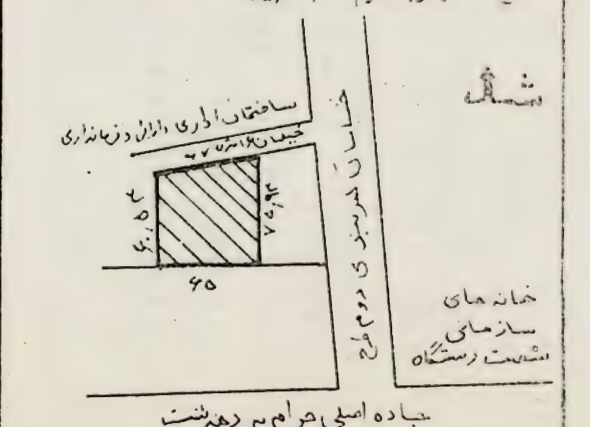 شمال
ساختمان اداری دارائی و فرمانداری
خیابان ۱۶ متری ۶۷
۶۰٫۵۳
۷۵٫۹۲
۶۵
خیابان کمربندی دوم طرح
خانه های
سازمانی
شصت دستگاه
جاده اصلی خرام به دهدشت